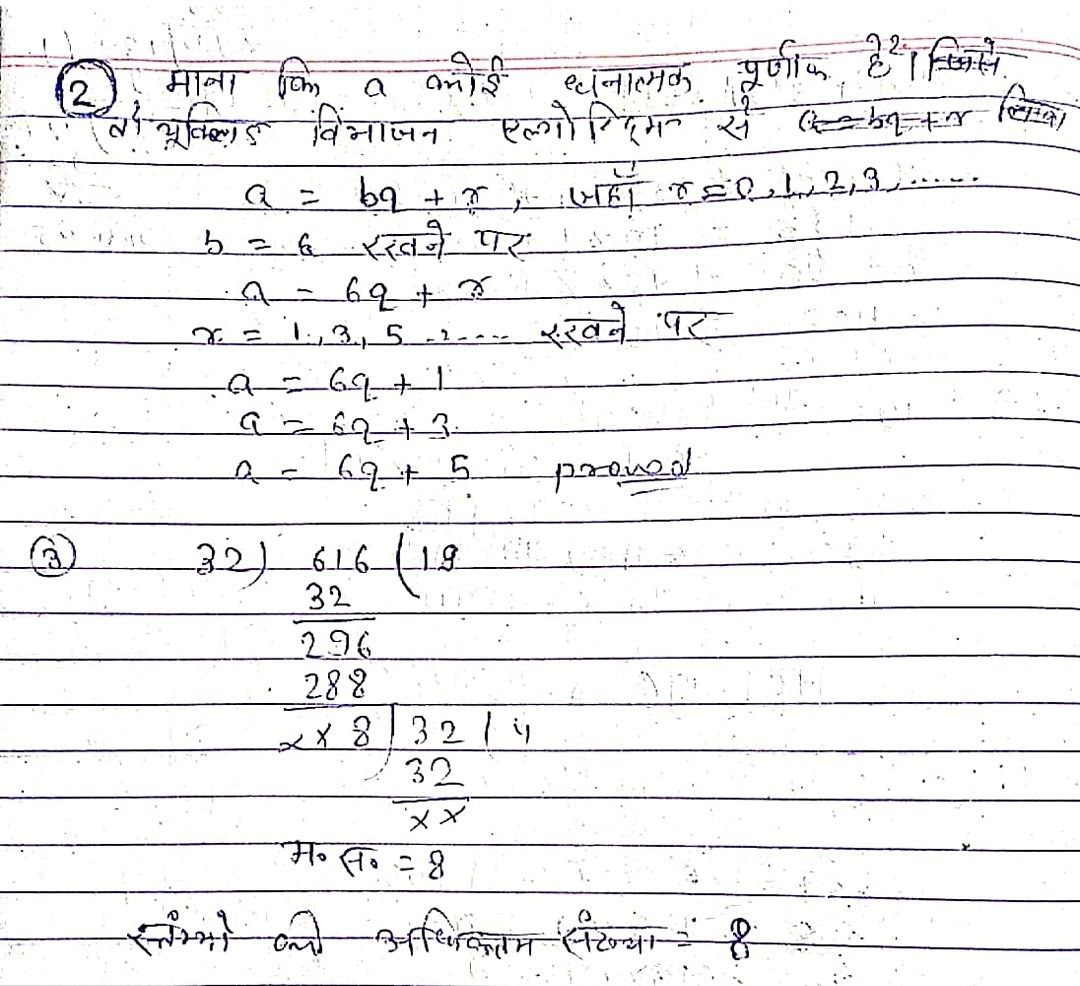 ② माना कि a कोई धनात्मक पूर्णांक है।
तो यूक्लिड विभाजन एल्गोरिद्म से a = bq + r
a = bq + r, जहाँ r = 0, 1, 2, 3, ......
b = 6 रखने पर
a = 6q + r
r = 1, 3, 5 ...... रखने पर
a = 6q + 1
a = 6q + 3
a = 6q + 5 proved
③ 32) 616 (19
32
296
288
×× 8) 32 ( 4
32
××
म० स० = 8
स्तंभों की अधिकतम संख्या = 8